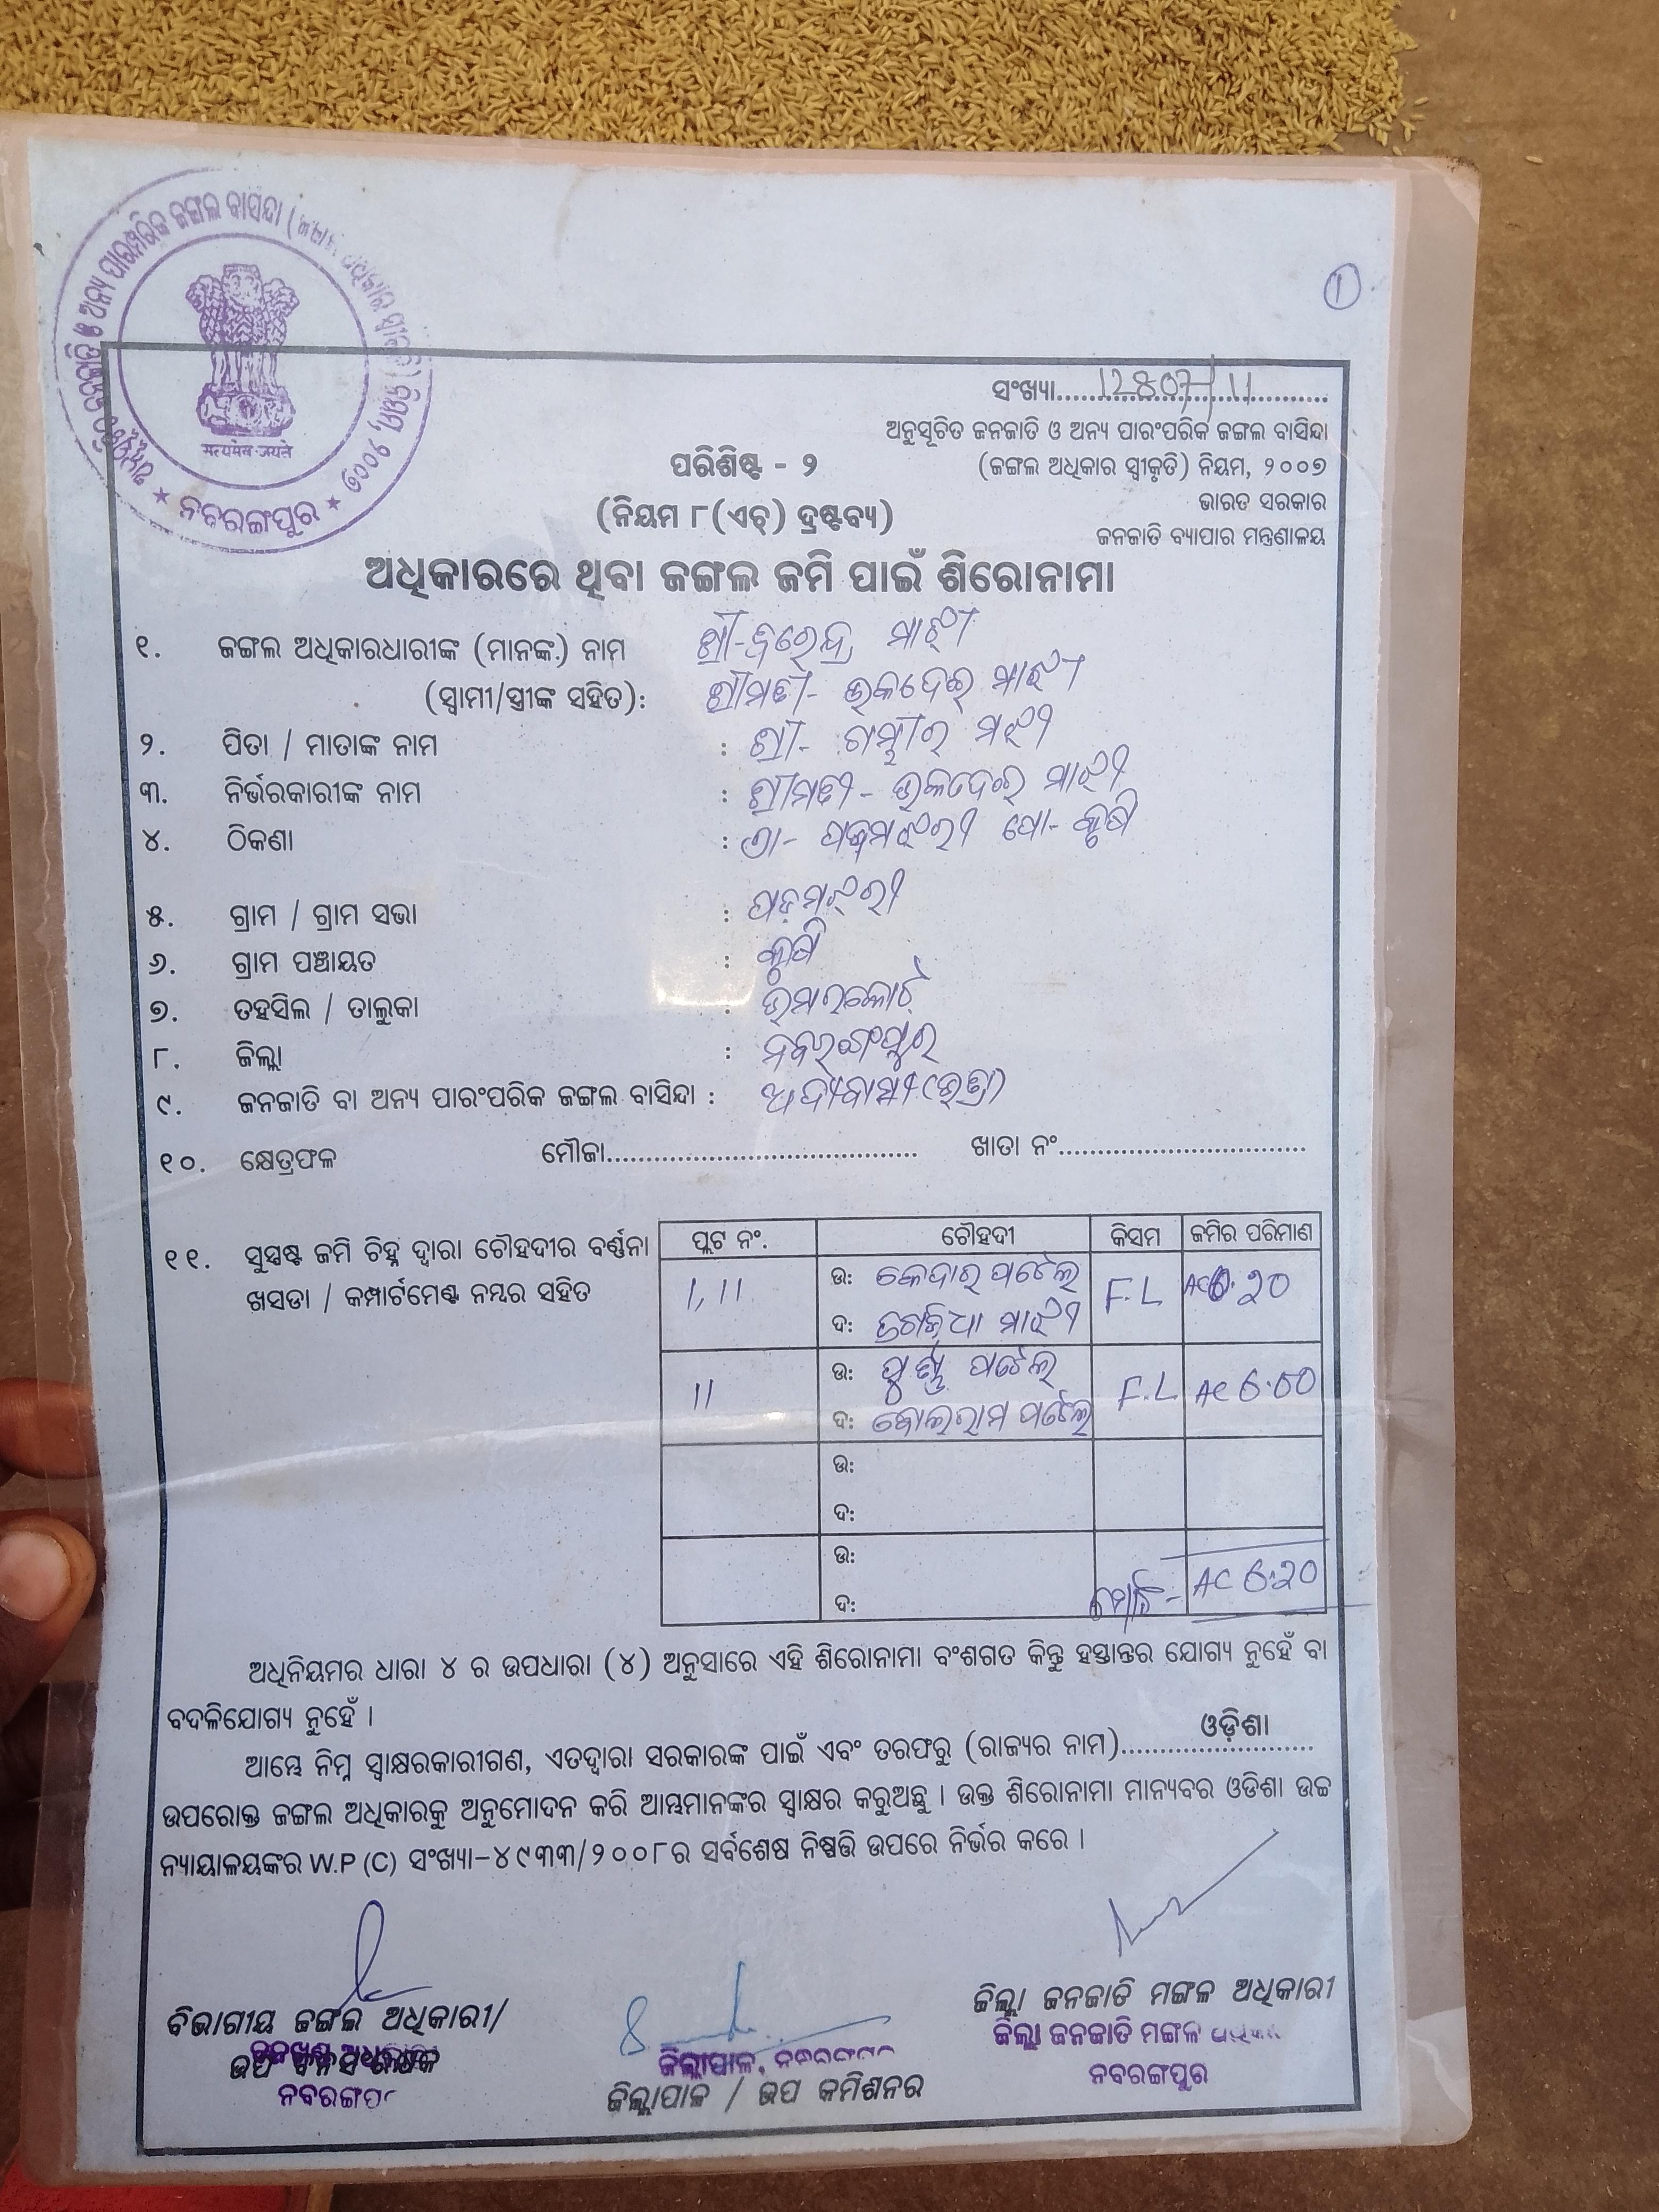 ୧
ସଂଖ୍ୟା..................
ଅନୁସୂଚିତ ଜନଜାତି ଓ ଅନ୍ୟ ପାରଂପରିକ ଜଙ୍ଗଲ ବାସିନ୍ଦା
(ଜଙ୍ଗଲ ଅଧିକାର ସ୍ୱୀକୃତି) ନିୟମ, ୨୦୦୭
ଭାରତ ସରକାର
ଜନଜାତି ବ୍ୟାପାର ମନ୍ତ୍ରଣାଳୟ
सत्यमेव जयते
ନବରଙ୍ଗପୁର
ପରିଶିଷ୍ଟ - ୨
(ନିୟମ ୮(ଏଚ୍) ଦ୍ରଷ୍ଟବ୍ୟ)
ଅଧିକାରରେ ଥିବା ଜଙ୍ଗଲ ଜମି ପାଇଁ ଶିରୋନାମା
୧. ଜଙ୍ଗଲ ଅଧିକାରଧାରୀଙ୍କ (ମାନଙ୍କ) ନାମ ଶ୍ରୀ- ମାଝୀ
(ସ୍ୱାମୀ/ସ୍ତ୍ରୀଙ୍କ ସହିତ): ଶ୍ରୀମତୀ- ଉକଦେଇ ମାଝୀ
୨. ପିତା / ମାତାଙ୍କ ନାମ : ଶ୍ରୀ- ଗମ୍ଭୀର ମଝୀ
୩. ନିର୍ଭରକାରୀଙ୍କ ନାମ : ଶ୍ରୀମତୀ- ଉକଦେଇ ମାଝୀ
୪. ଠିକଣା : ପୋ-
୫. ଗ୍ରାମ / ଗ୍ରାମ ସଭା :
୬. ଗ୍ରାମ ପଞ୍ଚାୟତ :
୭. ତହସିଲ / ତାଲୁକା : ଉମରକୋଟ୍
୮. ଜିଲ୍ଲା : ନବରଙ୍ଗପୁର
୯. ଜନଜାତି ବା ଅନ୍ୟ ପାରଂପରିକ ଜଙ୍ଗଲ ବାସିନ୍ଦା : ଆଦୀବାସୀ
୧୦. କ୍ଷେତ୍ରଫଳ ମୌଜା...................... ଖାତା ନଂ......................
୧୧. ସୁସ୍ପଷ୍ଟ ଜମି ଚିହ୍ନ ଦ୍ୱାରା ଚୌହଦୀର ବର୍ଣ୍ଣନା
ଖସଡା / କମ୍ପାର୍ଟମେଣ୍ଟ ନମ୍ବର ସହିତ
ପ୍ଲଟ ନଂ. ଚୌହଦୀ କିସମ ଜମିର ପରିମାଣ
1, 11 ଉ: କେଦାର ପଟେଲ F.L AC 0.20
ଦ: ମାଝୀ
11 ଉ: ପଟେଲ୍ F.L AC 6.00
ଦ: ପଟେଲ
ଉ:
ଦ:
ଉ:
ଦ: ମୋଟ- AC 6.20
ଅଧିନିୟମର ଧାରା ୪ ର ଉପଧାରା (୪) ଅନୁସାରେ ଏହି ଶିରୋନାମା ବଂଶଗତ କିନ୍ତୁ ହସ୍ତାନ୍ତର ଯୋଗ୍ୟ ନୁହେଁ ବା
ବଦଳିଯୋଗ୍ୟ ନୁହେଁ ।
ଆମ୍ଭେ ନିମ୍ନ ସ୍ୱାକ୍ଷରକାରୀଗଣ, ଏତଦ୍ୱାରା ସରକାରଙ୍କ ପାଇଁ ଏବଂ ତରଫରୁ (ରାଜ୍ୟର ନାମ)........ଓଡ଼ିଶା........
ଉପରୋକ୍ତ ଜଙ୍ଗଲ ଅଧିକାରକୁ ଅନୁମୋଦନ କରି ଆମ୍ଭମାନଙ୍କର ସ୍ୱାକ୍ଷର କରୁଅଛୁ । ଉକ୍ତ ଶିରୋନାମା ମାନ୍ୟବର ଓଡିଶା ଉଚ୍ଚ
ନ୍ୟାୟାଳୟଙ୍କର W.P (C) ସଂଖ୍ୟା-୪୯୩୩/୨୦୦୮ର ସର୍ବଶେଷ ନିଷ୍ପତ୍ତି ଉପରେ ନିର୍ଭର କରେ ।
ବିଭାଗୀୟ ଜଙ୍ଗଲ ଅଧିକାରୀ/
ଉପ ବନସଂରକ୍ଷକ
ନବରଙ୍ଗପୁର
ଜିଲ୍ଲାପାଳ, ନବରଙ୍ଗପୁର
ଜିଲ୍ଲାପାଳ / ଉପ କମିଶନର
ଜିଲ୍ଲା ଜନଜାତି ମଙ୍ଗଳ ଅଧିକାରୀ
ଜିଲ୍ଲା ଜନଜାତି ମଙ୍ଗଳ ଅଧିକାରୀ
ନବରଙ୍ଗପୁର